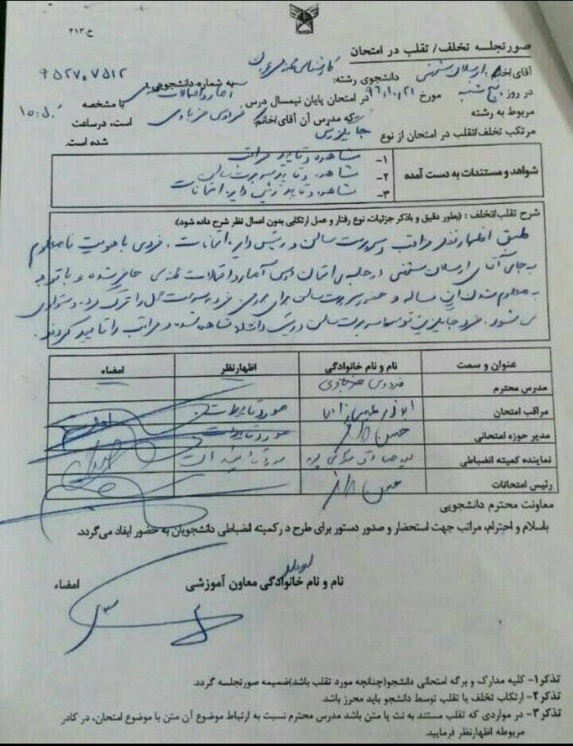 ح.۲۱۳
صورتجلسه تخلف/ تقلب در امتحان
آقای/خانم: ارسلان دانشجوی رشته: کارشناسی عمران به شماره دانشجویی: ۹۵۲۷۰۷۵۱۲
در روز پنج شنبه مورخ ۹۶,۱۰,۲۱ در امتحان پایان نیمسال درس آمار و احتمالات با مشخصه
مربوط به رشته که مدرس آن آقای/خانم: است، درساعت ۱۰:۵۰
مرتکب تخلف/تقلب در امتحان از نوع جایگزینی شده است.
شواهد و مستندات به دست آمده
۱- مشاهده و تایید مراقب
۲- مشاهده و تایید سرپرست سالن
۳- مشاهده و تایید رئیس دایره امتحانات
شرح تقلب/تخلف : (بطور دقیق و باذکر جزئیات، نوع رفتار و عمل ارتکابی بدون اعمال نظر شرح داده شود):
طبق اظهار نظر مراقب و سرپرست سالن و رئیس دایره امتحانات، فردی با هویت نامعلوم
به جای آقای ارسلان در جلسه امتحان درس آمار و احتمالات مهندسی حاضر شده و با توجه
به معلوم شدن این مساله و حضور سرپرست سالن برای بررسی، فرد محل را ترک کرد و متواری
می شود. فرد جایگزین توسط سرپرست سالن مشاهده شده و مراقب را تایید کردند.
عنوان و سمت نام و نام خانوادگی اظهارنظر امضاء
مدرس محترم
مراقب امتحان مورد تایید است
مدیر حوزه امتحانی مورد تایید است
نماینده کمیته انضباطی مورد تایید است
رئیس امتحانات
معاونت محترم دانشجویی
باسلام و احترام، مراتب جهت استحضار و صدور دستور برای طرح در کمیته انضباطی دانشجویان به حضور ایفاد می‌گردد.
نام و نام خانوادگی معاون آموزشی امضاء
تذکر۱- کلیه مدارک و برگه امتحانی دانشجو(چنانچه مورد تقلب باشد)ضمیمه صورتجلسه گردد.
تذکر۲- ارتکاب تخلف یا تقلب توسط دانشجو باید محرز باشد.
تذکر۳- در مواردی که تقلب مستند به نت یا متن باشد مدرس محترم نسبت به ارتباط موضوع آن متن با موضوع امتحان، در کادر
مربوطه اظهارنظر فرمایید.